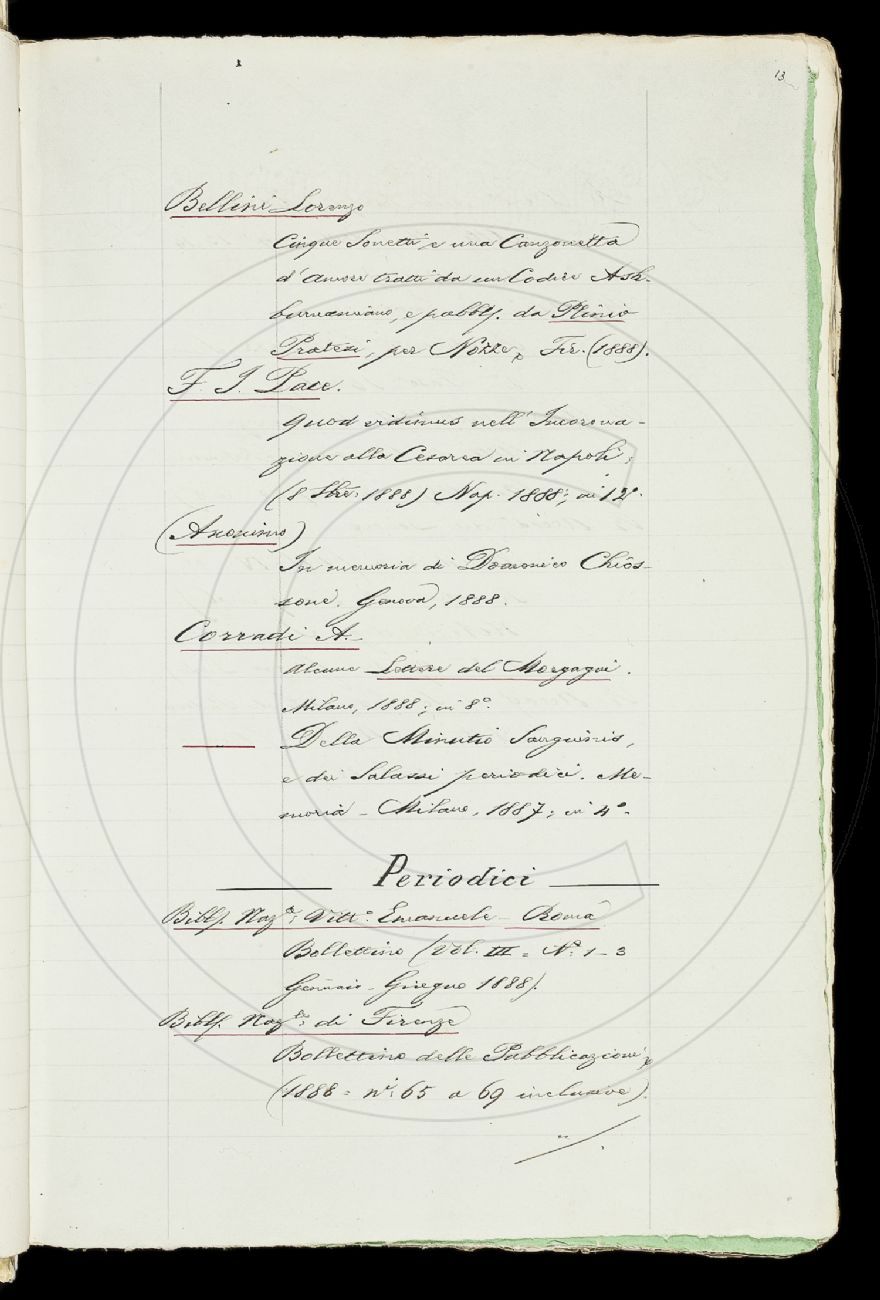 13
Bellini Lorenzo
Cinque Sonetti e una Canzonetta
d'amore tratti da un Codice Ash-
burnamiano, e pubbl. da Plinio
Pratesi, per Nozze, Fir. (1888).
F. I. Pace.
Quod vidimus nell'Incorona-
zione alla Cesarea in Napoli;
(8 8bre 1888) Nap. 1888; in 12º.
(Anonimo)
In memoria di Domenico Chios-
sone. Genova, 1888.
Corradi A.
Alcune Lettere del Morgagni.
Milano, 1888; in 8º.
Della Minutio Sanguinis,
e dei Salassi periodici. Me-
moria - Milano, 1887; in 4º.
Periodici
Bibl. Naz.le Vitt.º Emanuele - Roma
Bollettino (Vol. III = Nº 1-3
Gennaio - Giugno 1888).
Bibl. Naz.le di Firenze
Bollettino delle Pubblicazioni
(1888 = nⁱ 65 a 69 inclusive).